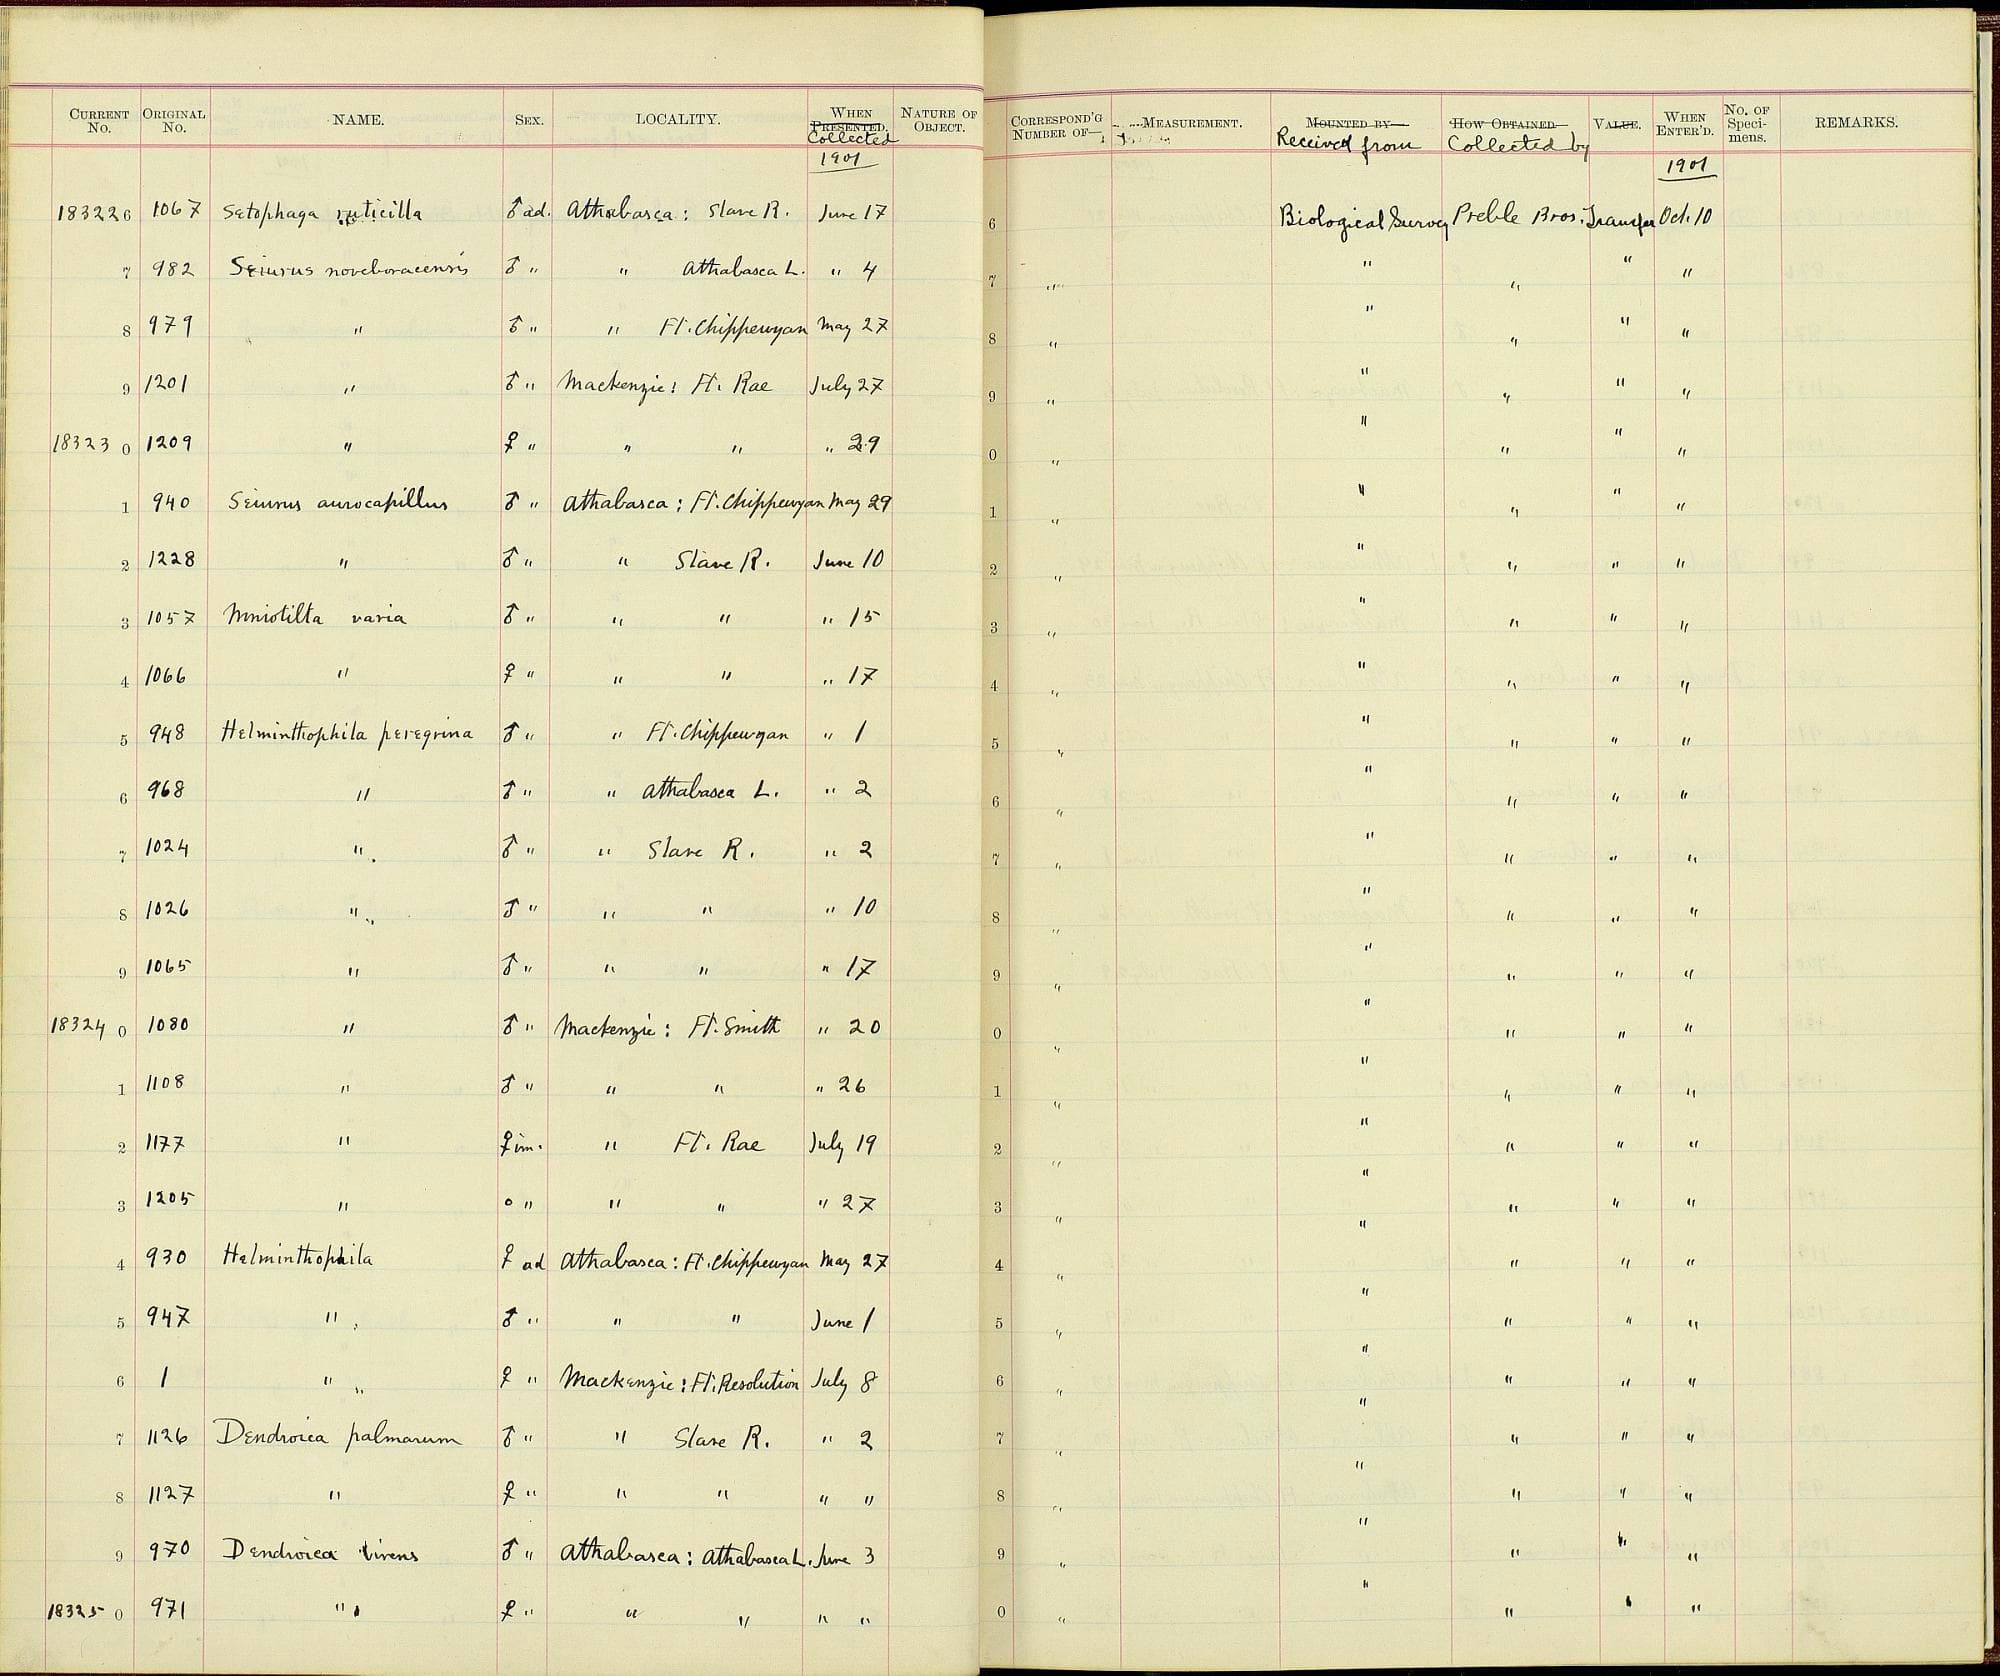 CURRENT No. ORIGINAL No. NAME. SEX. LOCALITY. WHEN PRESENTED. Collected NATURE OF OBJECT. CORRESPOND'G NUMBER OF— MEASUREMENT. MOUNTED BY— Received from HOW OBTAINED— Collected by VALUE. WHEN ENTER'D. NO. OF Speci- mens. REMARKS.
1901 1901
183226 1067 Setophaga ruticilla ♂ ad. Athabasca: Slave R. June 17 6 Biological Survey Preble Bros. Transfer Oct. 10
7 982 Seiurus noveboracensis ♂ " " Athabasca L. " 4 7 " " " " "
8 979 " ♂ " " Ft. Chippewyan May 27 8 " " " " "
9 1201 " ♂ " Mackenzie: Ft. Rae July 27 9 " " " " "
183230 1209 " ♀ " " " " 29 0 " " " " "
1 940 Seiurus aurocapillus ♂ " Athabasca: Ft. Chippewyan May 29 1 " " " " "
2 1228 " ♂ " " Slave R. June 10 2 " " " " "
3 1057 Mniotilta varia ♂ " " " " 15 3 " " " " "
4 1066 " ♀ " " " " 17 4 " " " " "
5 948 Helminthophila peregrina ♂ " " Ft. Chippewyan " 1 5 " " " " "
6 968 " ♂ " " Athabasca L. " 2 6 " " " " "
7 1024 " ♂ " " Slave R. " 2 7 " " " " "
8 1026 " ♂ " " " " 10 8 " " " " "
9 1065 " ♂ " " " " 17 9 " " " " "
183240 1080 " ♂ " Mackenzie: Ft. Smith " 20 0 " " " " "
1 1108 " ♂ " " " " 26 1 " " " " "
2 1177 " ♀ im. " Ft. Rae July 19 2 " " " " "
3 1205 " o " " " " 27 3 " " " " "
4 930 Helminthophila ♀ ad Athabasca: Ft. Chippewyan May 27 4 " " " " "
5 947 " ♂ " " " June 1 5 " " " " "
6 1 " ♀ " Mackenzie: Ft. Resolution July 8 6 " " " " "
7 1126 Dendroica palmarum ♂ " " Slave R. " 2 7 " " " " "
8 1127 " ♀ " " " " " 8 " " " " "
9 970 Dendroica virens ♂ " Athabasca: Athabasca L. June 3 9 " " " " "
183250 971 " ♀ " " " " " 0 " " " " "